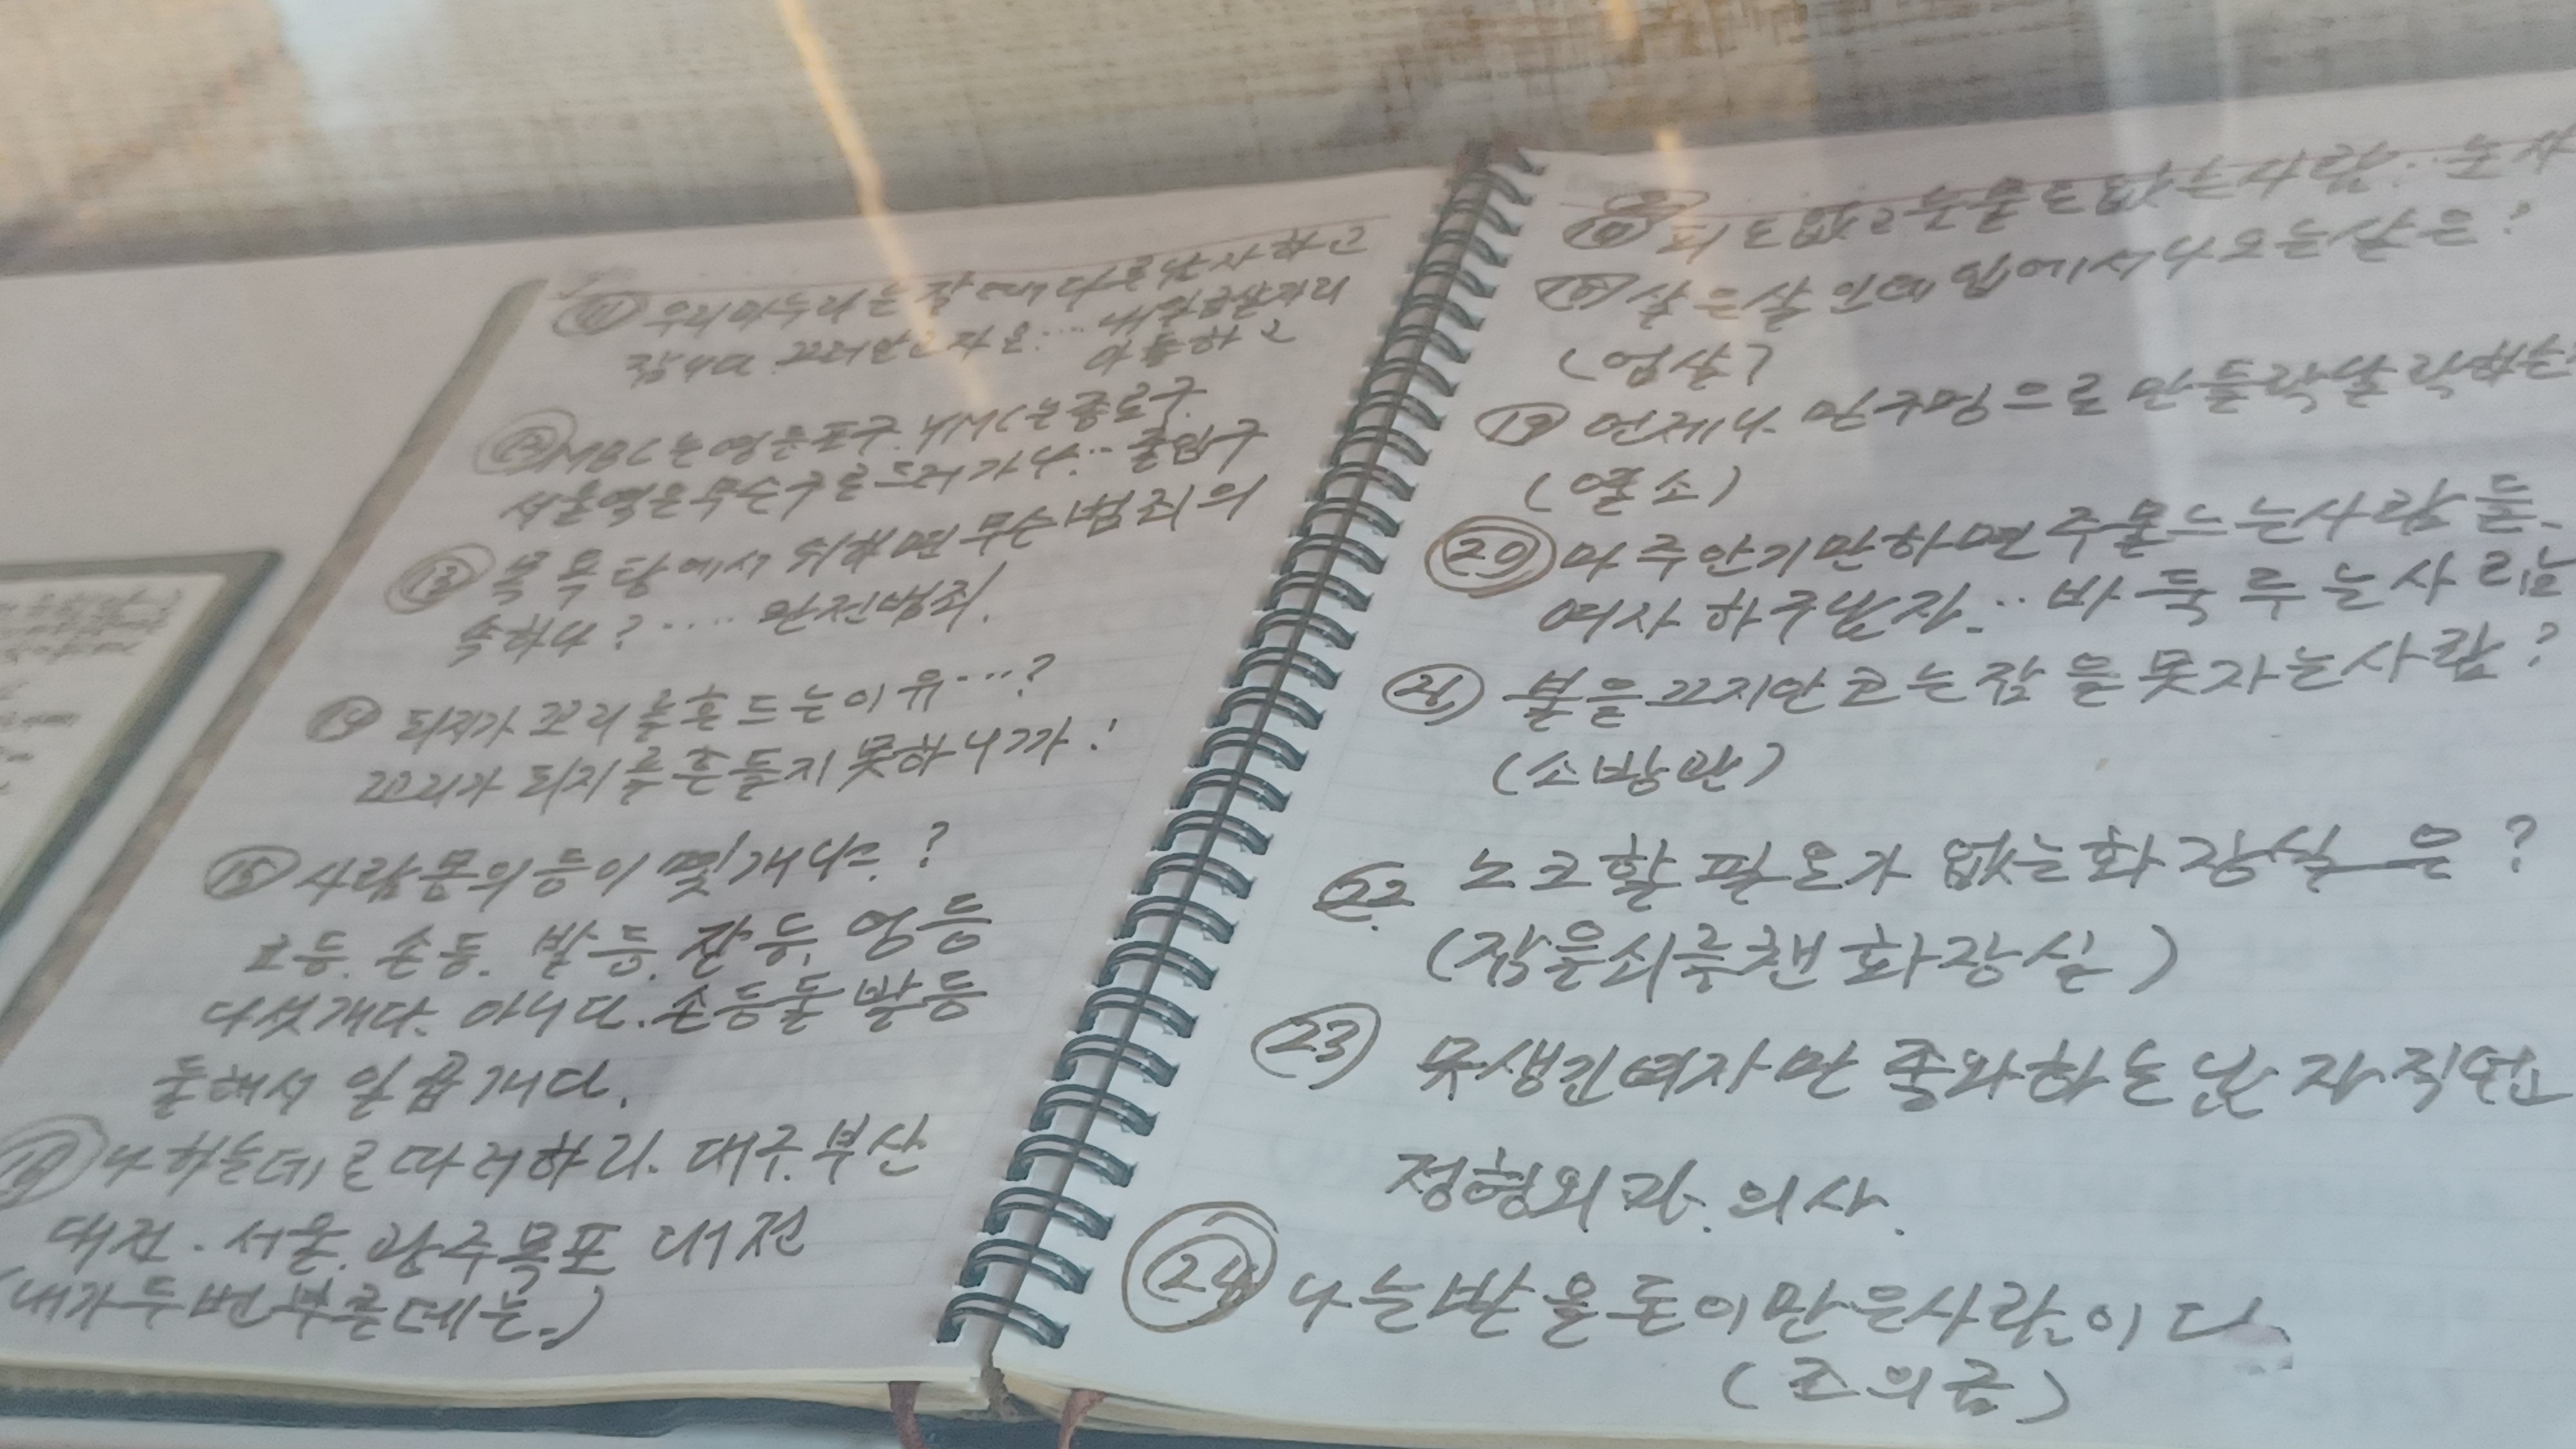 ⑪ 우리마누라는 잘때 다른남자하고
잠니다 끄러안고자요:… 내일곱살짜리
아들하고
MBC는 영등포구. YMC는종로구
서울역은무슨구로드러가나… 출입구
⑬ 목욕탕에서 취하면 무슨범죄의
속하나?…… 완전범죄.
⑭ 되지가 꼬리를흔드는이유…?
꼬리가 되지를흔들지못하니까!
⑮ 사람몸의등이 몇개냐?
코등. 손등. 발등. 잔등, 엉등
다섯개다. 아니다. 손등둘발등
둘해서 일곱개다.
나하는데로따러하리. 대구.부산
대전. 서울. 광주목포 대전
(내가두번부른데는.)
피도없고눈물도없는사람.. 눈사
살은살인데입에서나오는살은?
(엄살)
⑲ 언제나. 만구멍으로만들락날락하는
(열소)
⑳ 마주안기만하면주물느는사람들.
여사하구남자.. 바둑두는사람
㉑ 불을끄지안코는잠을못자는사람?
(소방관)
22. 노크할필요가 없는화장실은?
(잠을쇠를챈화장실)
㉓ 못생긴여자만 좋와하는남자직업
정형외과. 의사.
㉔ 나는받을돈이만은사람이다
(조의금)